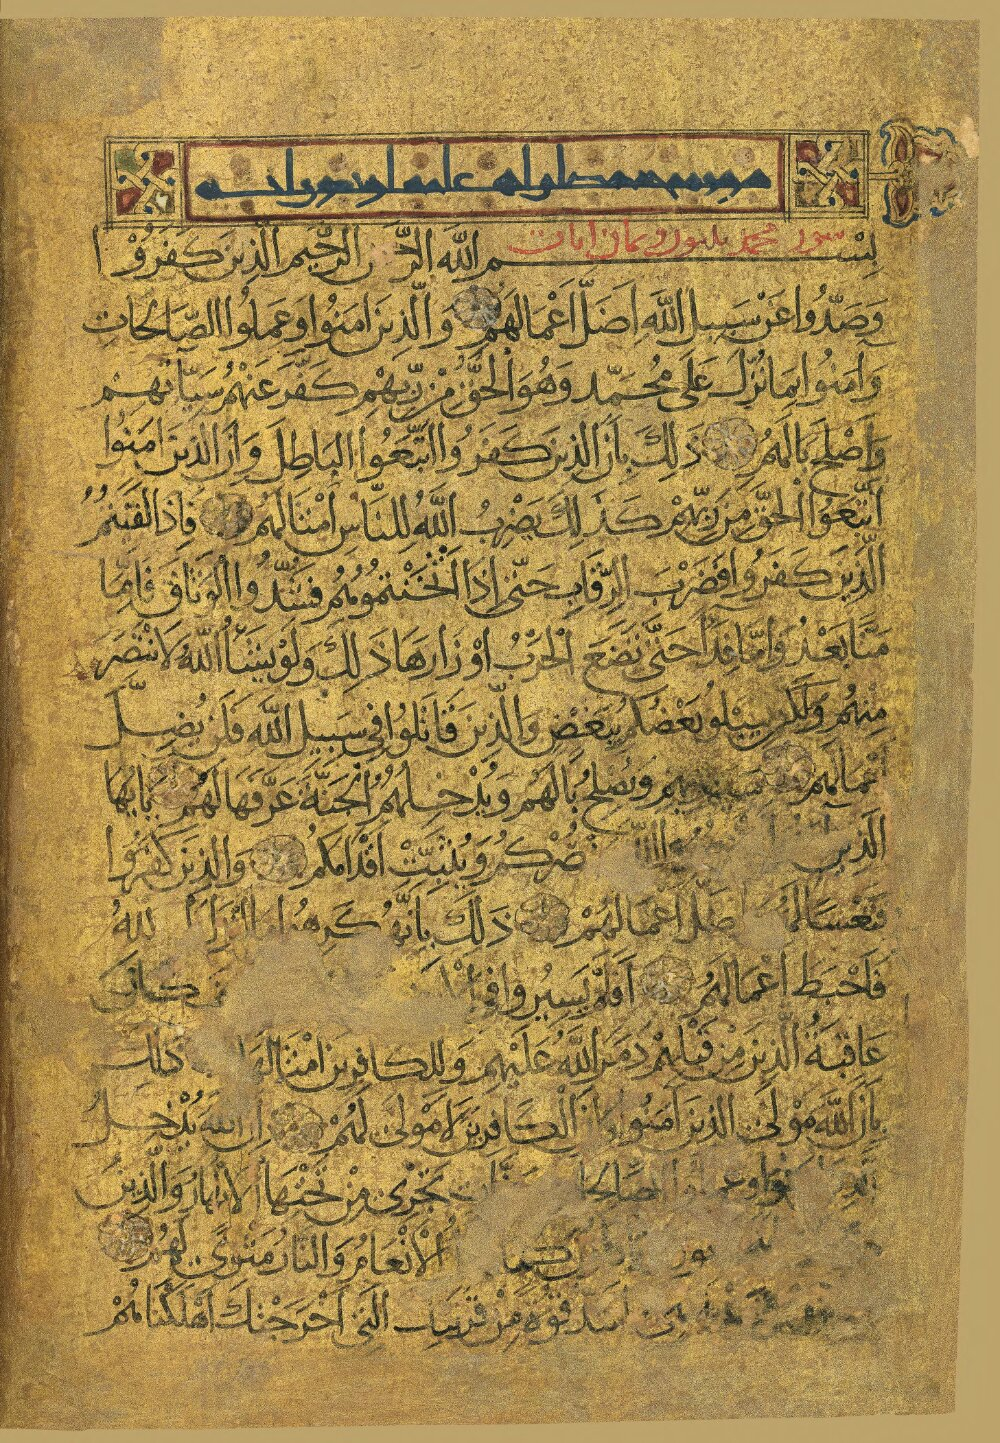 سورة محمد ثلثون وثمان ايات
بسم الله الرحمن الرحيم الذين كفروا
وصدوا عن سبيل الله اضل اعمالهم والذين امنوا وعملوا الصالحات
وامنوا بما نزل على محمد وهو الحق من ربهم كفر عنهم سياتهم
واصلح بالهم ذلك بان الذين كفروا اتبعوا الباطل وان الذين امنوا
اتبعوا الحق من ربهم كذلك يضرب الله للناس امثالهم فاذا لقيتم
الذين كفروا فضرب الرقاب حتى اذا اثخنتموهم فشدوا الوثاق فاما
منا بعد واما فدا حتى تضع الحرب اوزارها ذلك ولو يشا الله لانتصر
منهم ولكن ليبلو بعضكم ببعض والذين قاتلوا في سبيل الله فلن يضل
اعمالهم سيهديهم ويصلح بالهم ويدخلهم الجنة عرفها لهم يايها
الذين الله ينصركم ويثبت اقدامكم والذين كفروا
فتعسا لهم واضل اعمالهم ذلك بانهم كرهوا ما انزل الله
فاحبط اعمالهم افلم يسيروا في كان
عاقبة الذين من قبلهم دمر الله عليهم وللكافرين امثالها ذلك
بان الله مولى الذين امنوا وان الكافرين لا مولى لهم ان الله يدخل
الذين امنوا وعملوا الصالحات جنات تجري من تحتها الانهار والذين
كما الانعام والنار مثوى لهم
هي اشد قوة من قريتك التي اخرجتك اهلكناهم